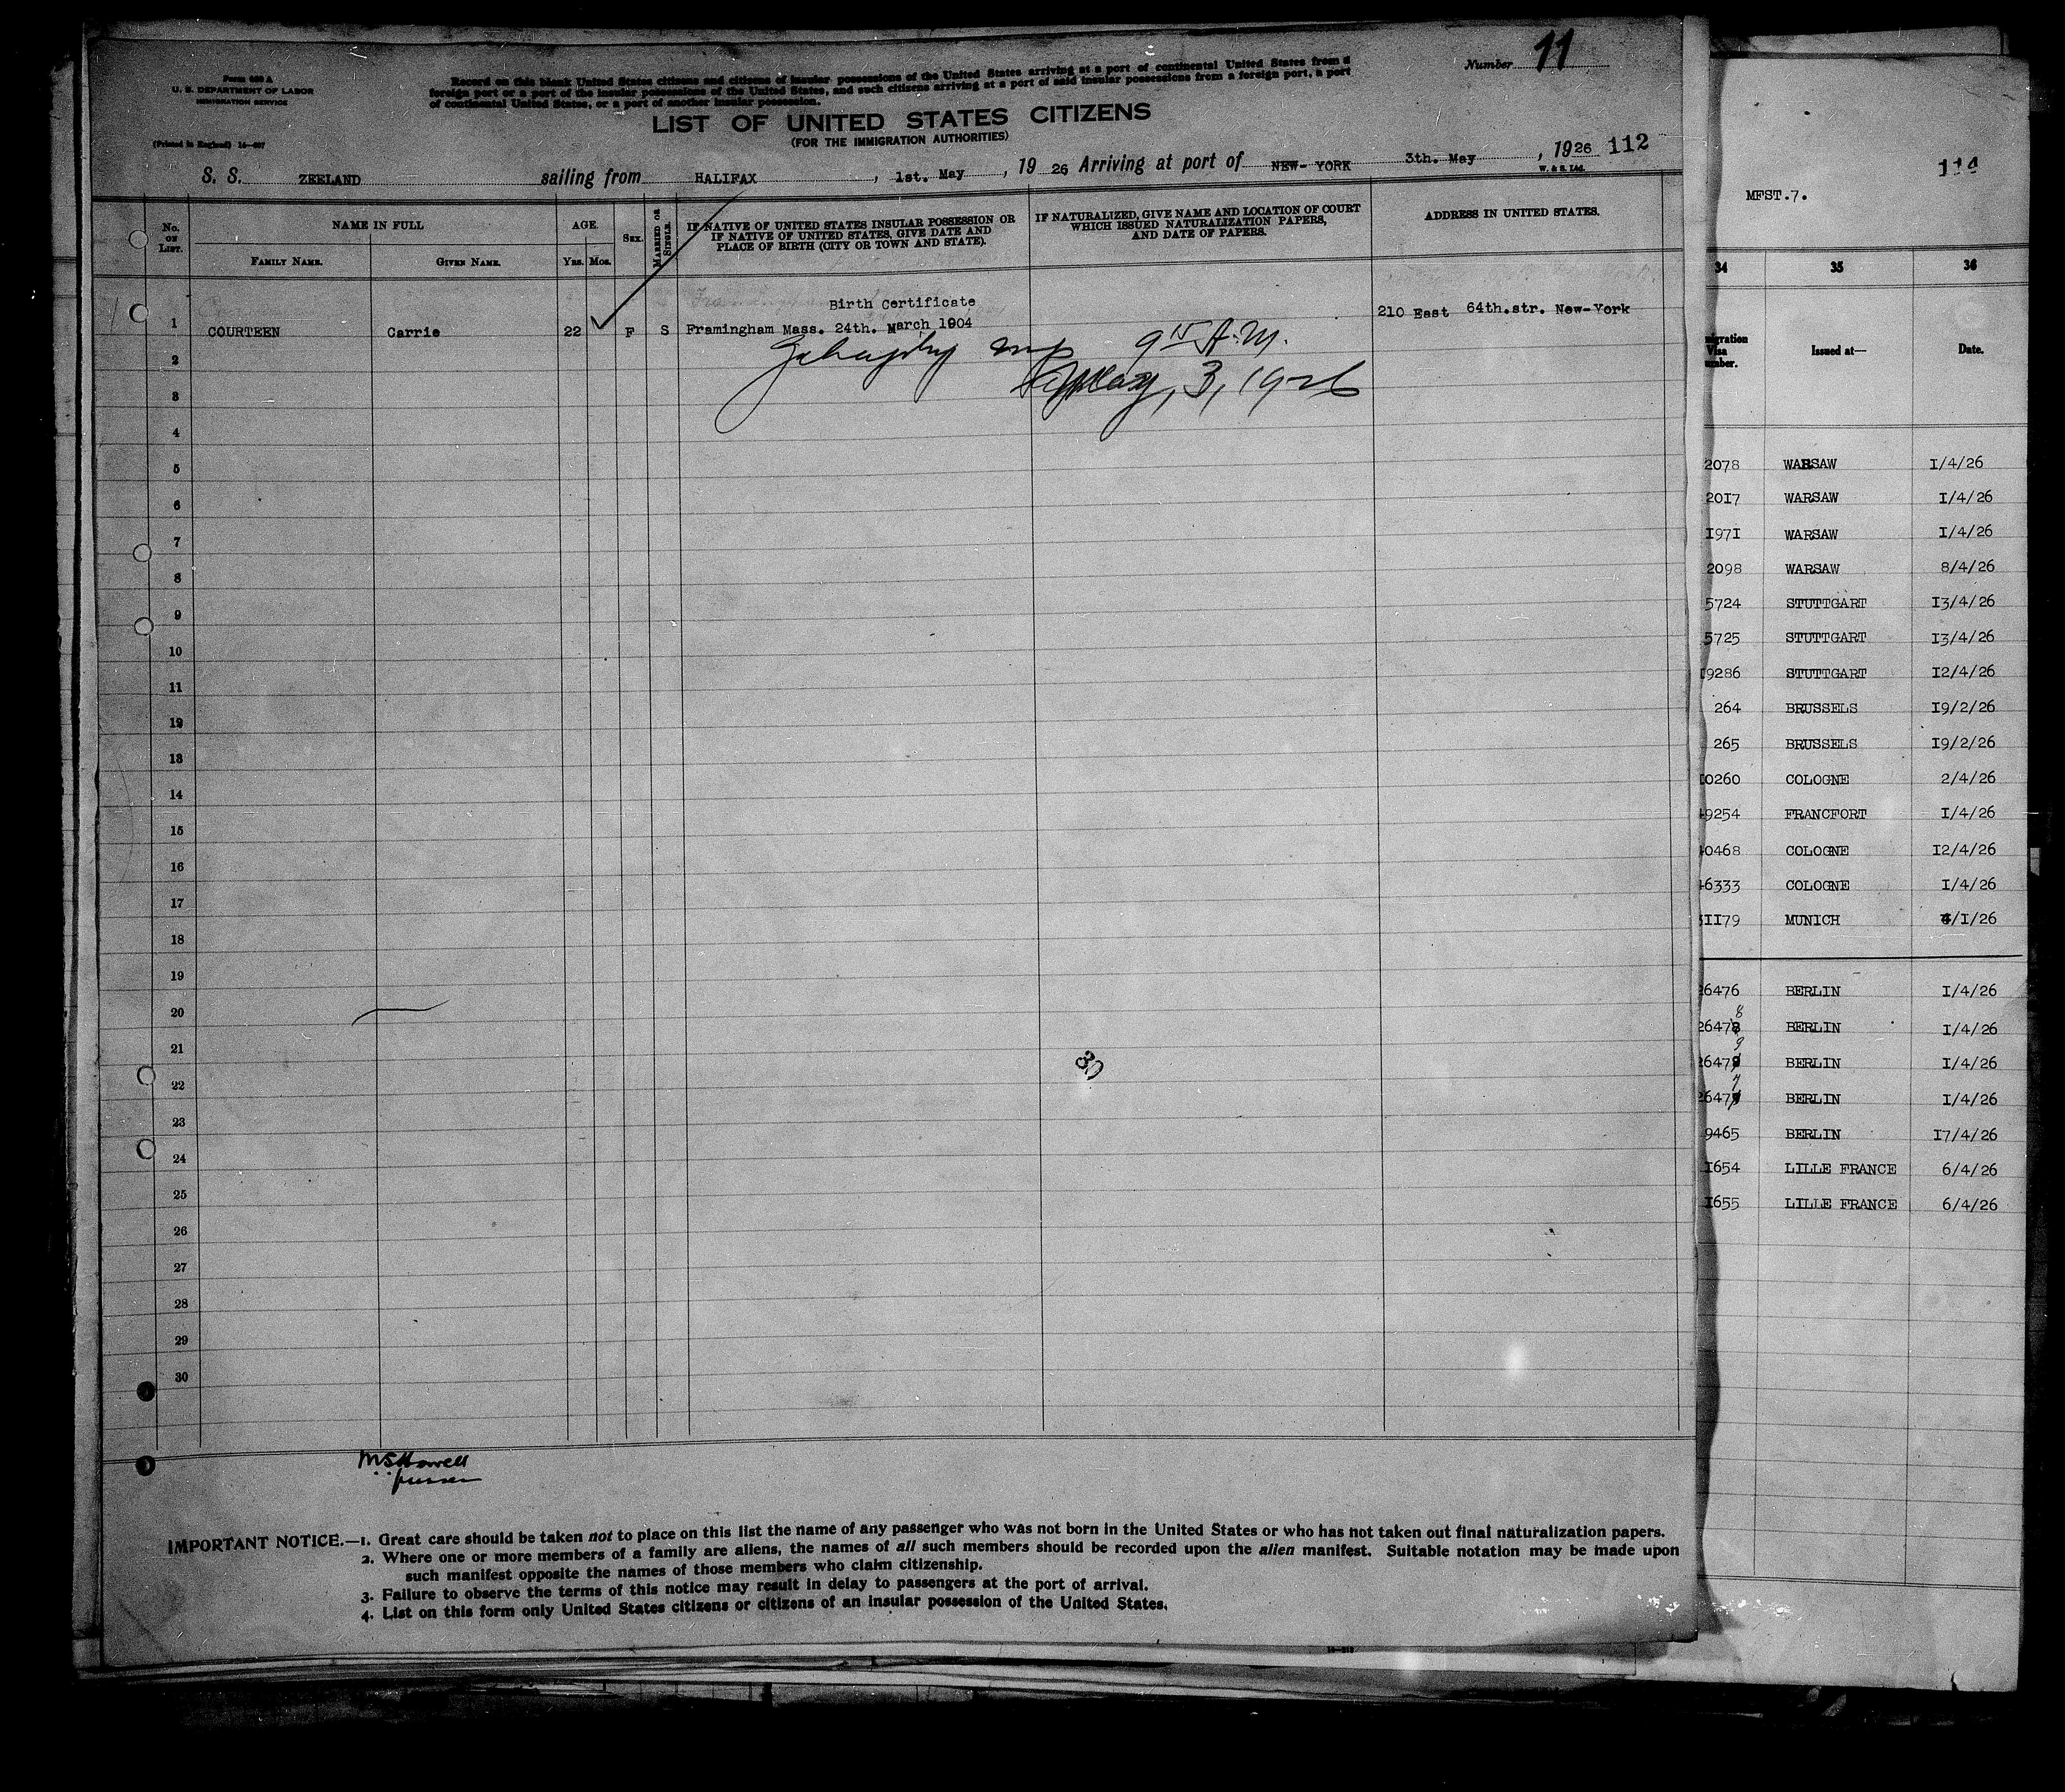 Number 11
Form 630 A
U. S. DEPARTMENT OF LABOR
IMMIGRATION SERVICE
(Printed in England) 14—667
Record on this blank United States citizens and citizens of insular possessions of the United States arriving at a port of continental United States from a
foreign port or a port of the insular possessions of the United States, and such citizens arriving at a port of said insular possessions from a foreign port, a port
of continental United States, or a port of another insular possession.
LIST OF UNITED STATES CITIZENS
(FOR THE IMMIGRATION AUTHORITIES)
S. S. ZEELAND sailing from HALIFAX, 1st. May, 19 26 Arriving at port of NEW-YORK 3th. May, 1926 112
W. & S. Ltd.
No. ON LIST.
NAME IN FULL
FAMILY NAME.
GIVEN NAME.
AGE.
YRS. MOS.
SEX.
MARRIED OR SINGLE.
IF NATIVE OF UNITED STATES INSULAR POSSESSION OR
IF NATIVE OF UNITED STATES, GIVE DATE AND
PLACE OF BIRTH (CITY OR TOWN AND STATE).
IF NATURALIZED, GIVE NAME AND LOCATION OF COURT
WHICH ISSUED NATURALIZATION PAPERS,
AND DATE OF PAPERS.
ADDRESS IN UNITED STATES.
Birth Certificate
1 COURTEEN Carrie 22 F S Framingham Mass. 24th. March 1904 210 East 64th.str. New-York
9 A.M.
2
May, 3, 1926
3
4
5
6
7
8
9
10
11
12
13
14
15
16
17
18
19
20
21
22
23
24
25
26
27
28
29
30
MSHowell
IMPORTANT NOTICE.—1. Great care should be taken not to place on this list the name of any passenger who was not born in the United States or who has not taken out final naturalization papers.
2. Where one or more members of a family are aliens, the names of all such members should be recorded upon the alien manifest. Suitable notation may be made upon
such manifest opposite the names of those members who claim citizenship.
3. Failure to observe the terms of this notice may result in delay to passengers at the port of arrival.
4. List on this form only United States citizens or citizens of an insular possession of the United States.
114
MFST.7.
34 35 36
Visa
Issued at— Date.
2078 WARSAW I/4/26
20I7 WARSAW I/4/26
I97I WARSAW I/4/26
2098 WARSAW 8/4/26
5724 STUTTGART I3/4/26
5725 STUTTGART I3/4/26
9286 STUTTGART I2/4/26
264 BRUSSELS I9/2/26
265 BRUSSELS I9/2/26
0260 COLOGNE 2/4/26
9254 FRANCFORT I/4/26
0468 COLOGNE I2/4/26
6333 COLOGNE I/4/26
II79 MUNICH /I/26
26476 BERLIN I/4/26
26478 BERLIN I/4/26
26479 BERLIN I/4/26
26477 BERLIN I/4/26
9465 BERLIN I7/4/26
I654 LILLE FRANCE 6/4/26
I655 LILLE FRANCE 6/4/26